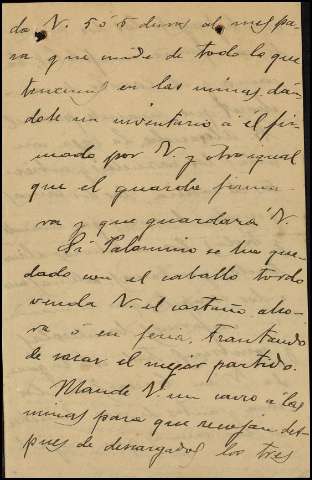 do V. 5 ó 5 duros al mes pa-
ra que cuide de todo lo que
tenemos en las minas, dán-
dole un inventario á él fir-
mado por V. y otro igual
que el guarda firma-
rá y que guardará V.
Si Palomino se ha que-
dado con el caballo tordo
venda V. el castaño aho-
ra ó en feria, tratando
de sacar el mejor partido.
Mande V. un carro á las
minas para que recojan des-
pues de descargados los tres